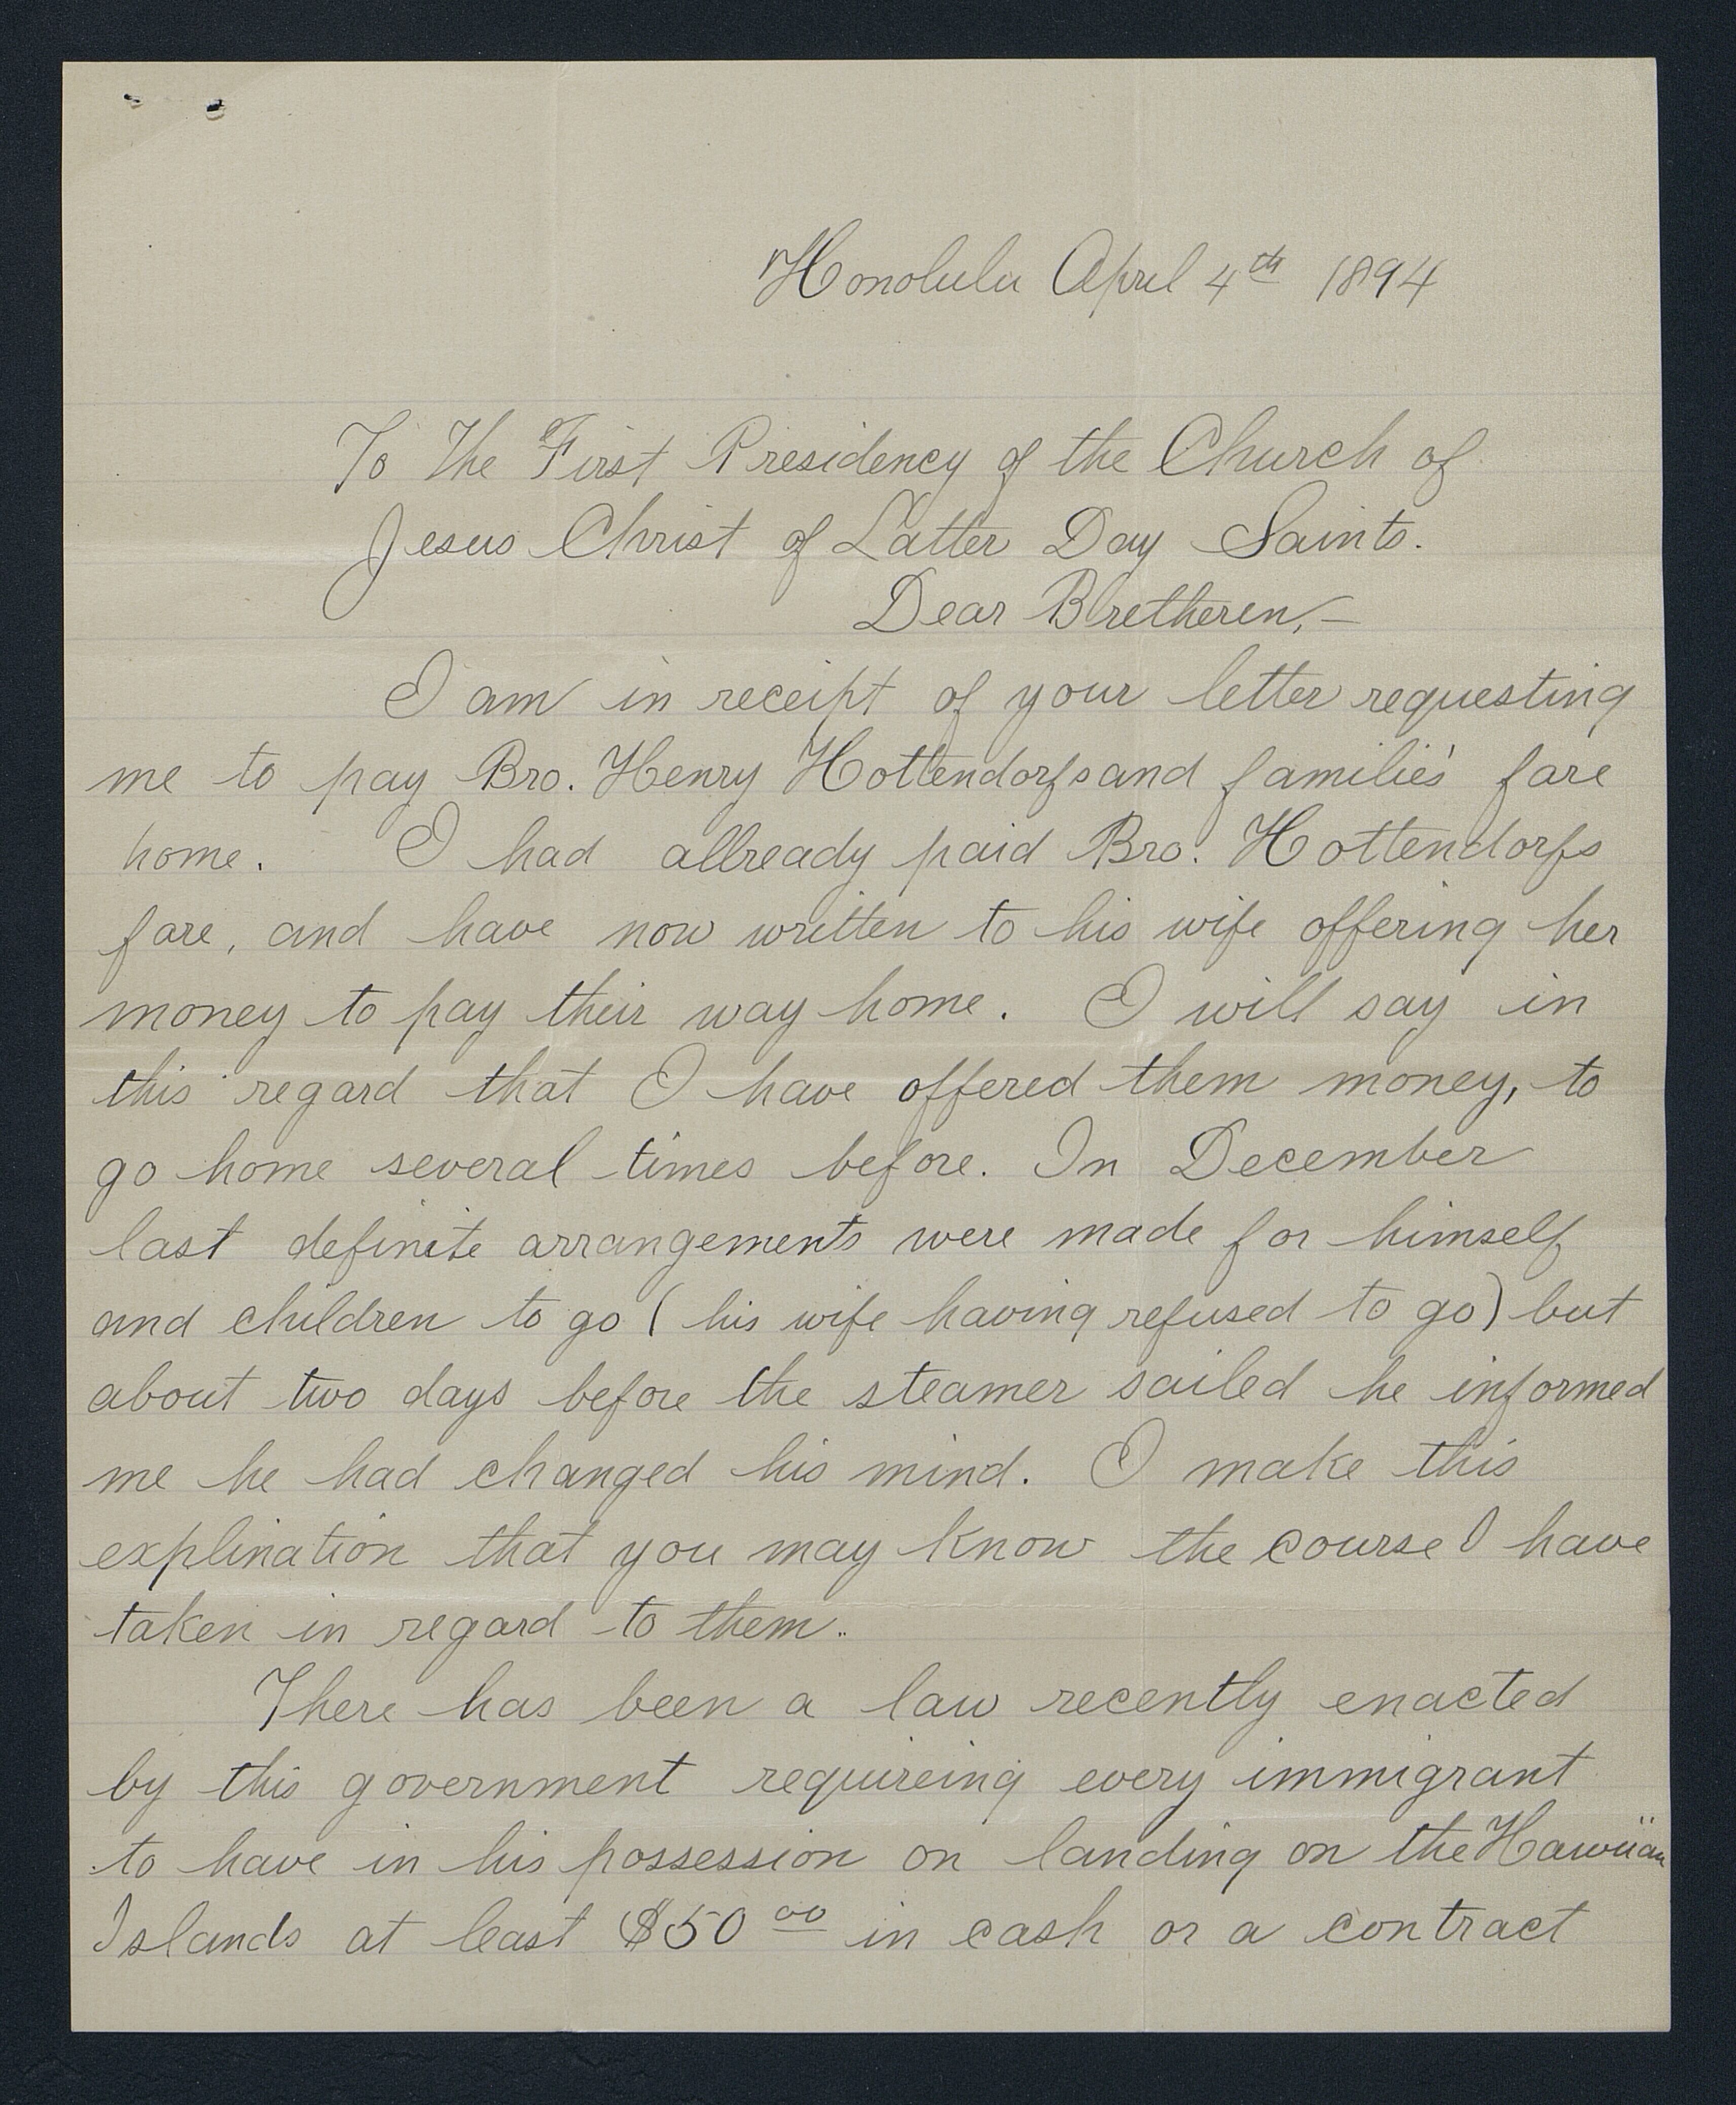 Honolulu April 4th 1894
To The First Presidency of the Church of
Jesus Christ of Latter Day Saints.
Dear Bretheren,—
I am in receipt of your letter requesting
me to pay Bro. Henry Hottendorfs and familie's fare
home. I had allready paid Bro. Hottendorfs
fare, and have now written to his wife offering her
money to pay their way home. I will say in
this regard that I have offered them money, to
go home several times before. In December
last definite arrangements were made for himself
and children to go ( his wife having refused to go) but
about two days before the steamer sailed he informed
me he had changed his mind. I make this
explination that you may know the course I have
taken in regard to them..
There has been a law recently enacted
by this government requireing every immigrant
to have in his possession on landing on the Hawiian
Islands at least $50 00 in cash or a contract